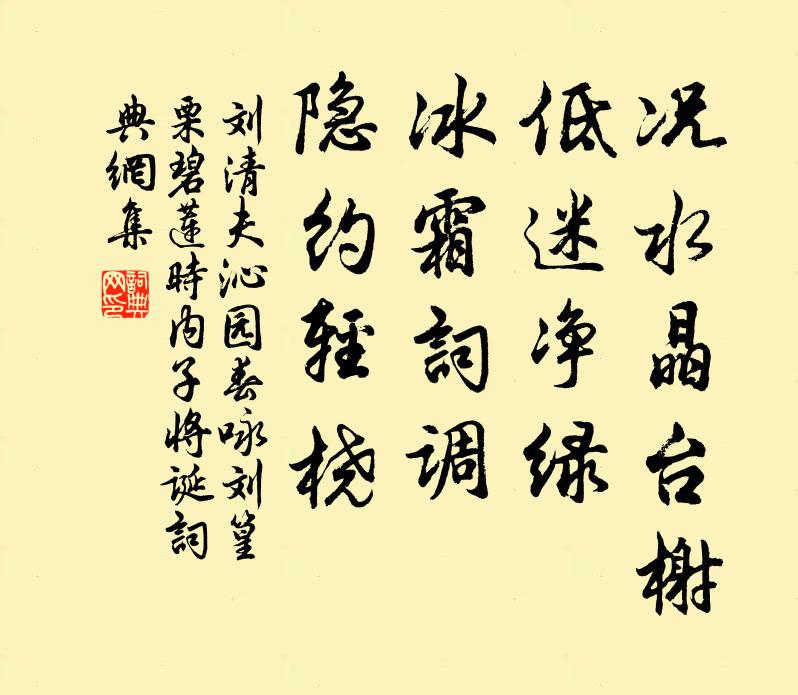 况水晶台榭
低迷净绿
冰霜詞调
隐约轻桡
刘清夫沁园春咏刘篁
栗碧莲時内子将诞詞
典網集
詞典网印